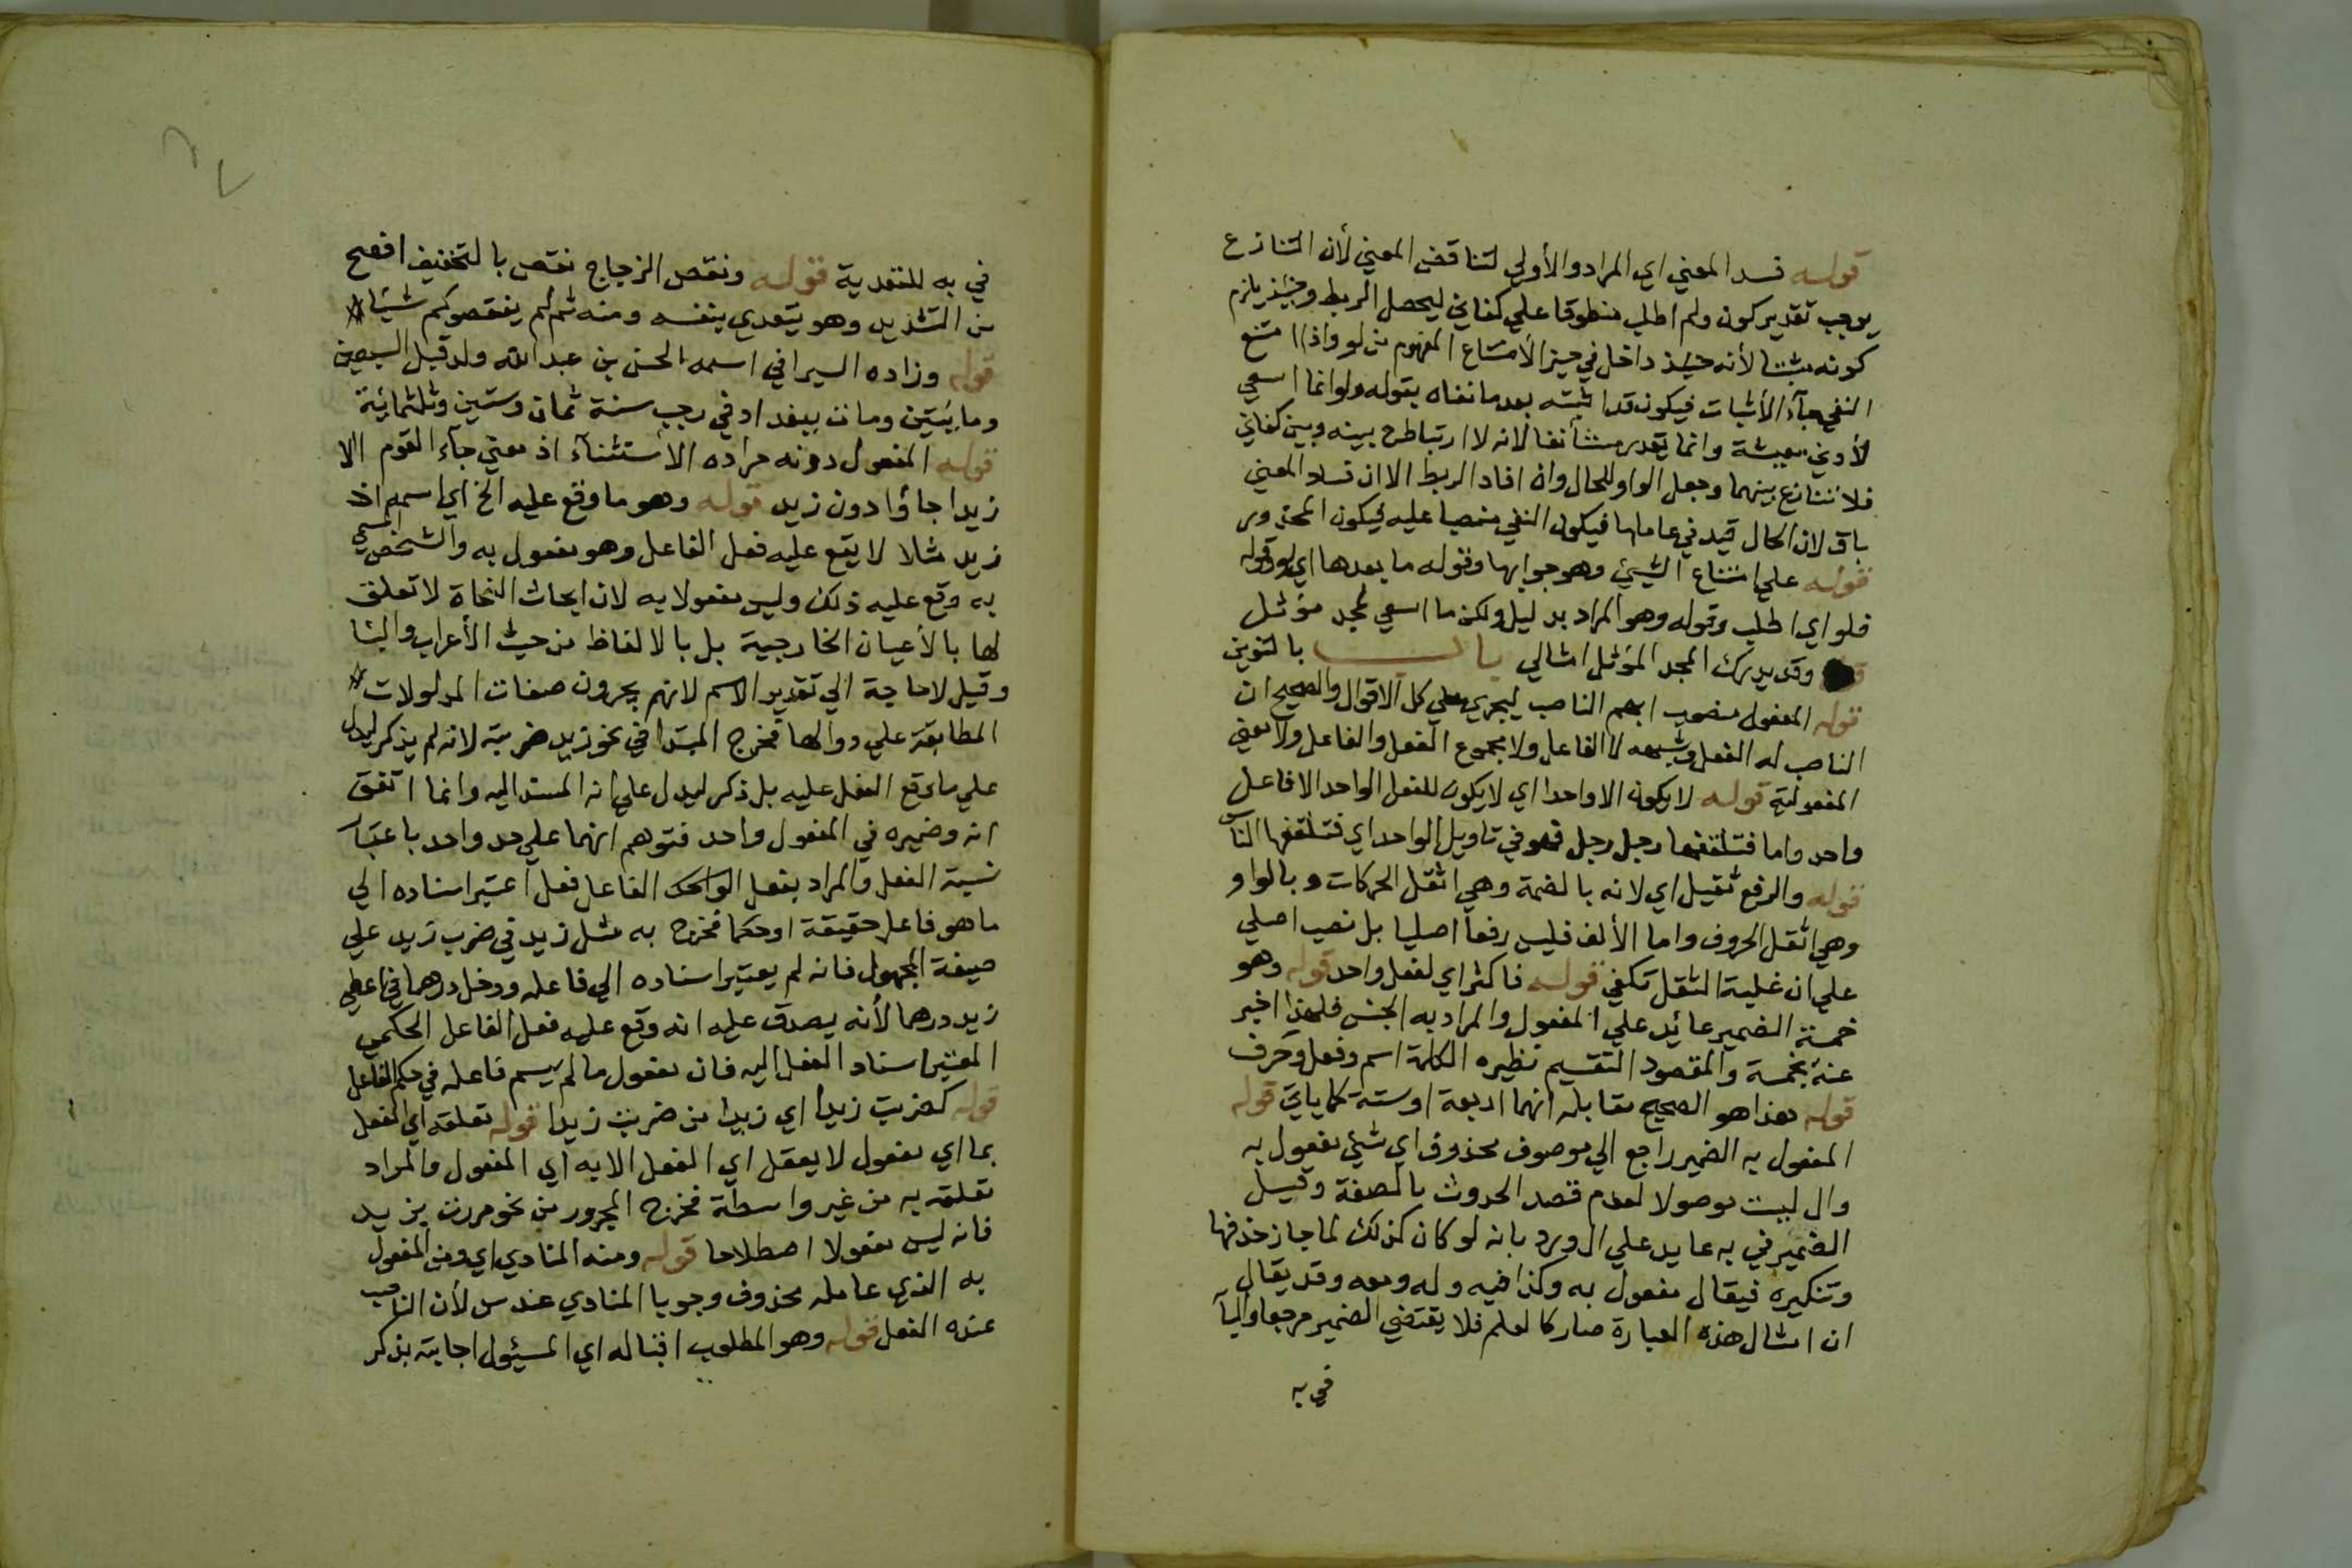 قوله فسد المعني اي المراد والأولي لتناقض المعني لأن التنازع
يوجب تقدير كون ولم اطلب منطوقا علي كفاني ليحصل الربط وحينئذ يلزم
كونه مثبتا لأنه حينئذ داخل في حيز الأمتناع المفهوم من لو واذا امتنع
النفي جآء الأثبات فيكون قد اثبته بعد ما نفاه بقوله ولو انما اسعي
لأدني معيشة وانما يقدر مستأنفا لانه لا ارتباط ح بينه وبين كفاني
فلا تنازع بينهما وجعل الواو للحال وان افاد الربط الا ان فساد المعني
باق لان الحال قيد في عاملها فيكون النفي منصبا عليه فيكون المحذور
قوله علي امتناع الشيئ وهو جوابها وقوله ما بعدها اي لو وقوله
فلو اي اطلب وقوله وهو المراد بدليل ولكنما اسعي لمجد مؤثل
وقد يدرك المجد المؤثل امثالي باب بالتنوين
قوله المفعول منصوب ابهم الناصب ليجري علي كل الاقوال والصحيح ان
الناصب له الفعل وشبهه لا الفاعل ولا مجموع الفعل والفاعل ولا معني
المفعولية قوله لا يكون الا واحدا اي لا يكون للفعل الواحد الا فاعل
واحد واما فتلقفها رجل رجل فهو في تاويل الواحد اي فتلقفها الناس
قوله والرفع ثقيل اي لانه بالضمة وهي اثقل الحركات وبالواو
وهي اثقل الحروف واما الألف فليس رفعا اصليا بل نصب اصلي
علي ان غلبة الثقل تكفي قوله فاكثر اي لفعل واحد قوله وهو
خمسة الضمير عائد علي المفعول والمراد به الجنس فلهذا اخبر
عنه بخمسة والمقصود التقسيم نظيره الكلمة اسم وفعل وحرف
قوله هذا هو الصحيح مقابله انهما اربعة او ستة كما ياتي قوله
المفعول به الضمير راجع الي موصوف محذوف اي شيئ مفعول به
وال ليست موصولا لعدم قصد الحدوث بالصفة وقيل
الضمير في به عايد علي ال ورد بانه لو كان كذلك لما جاز حذفها
وتنكيره فيقال مفعول به وكذا فيه وله ومعه وقد يقال
ان امثال هذه العبارة صار كالعلم فلا يقتضي الضمير مرجعا والبآ
في به
في به للتعدية قوله ونقص الزجاج نقص بالتخفيف افصح
من التشديد وهو يتعدي بنفسه ومنه ثم لم ينقصوكم شيئا
قوله وزاده السيرافي اسمه الحسن بن عبد الله ولد قبل السبعين
ومايتين ومات ببغداد في رجب سنة ثمان وستين وثلثمائة
قوله المفعول دونه مراده الأستثنآء اذ معني جآء القوم الا
زيدا جاؤا دون زيد قوله وهو ما وقع عليه الخ اي اسمه اذ
زيد مثلا لا يقع عليه فعل الفاعل وهو مفعول به والشخص المسمي
به وقع عليه ذلك وليس مفعولا به لان ابحاث النحاة لا تعلق
لها بالأعيان الخارجية بل بالالفاظ من حيث الأعراب والبنا
وقيل لا حاجة الي تقدير الاسم لانهم يجرون صفات المدلولات
المطابقة علي دوالها فخرج المبتدا في نحو زيد ضربته لانه لم يذكر ليدل
علي ما وقع الفعل عليه بل ذكر ليدل علي انه المسند اليه وانما اتفق
انه وضميره في المفعول واحد فتوهم انهما علي حد واحد باعتبار
نسبة الفعل والمراد بفعل الفاعل فعل اعتبر اسناده الي
ما هو فاعل حقيقة او حكما فخرج به مثل زيد في ضرب زيد علي
صيغة المجهول فانه لم يعتبر اسناده الي فاعله ودخل درهما في اعطي
زيد درهما لأنه يصدق عليه انه وقع عليه فعل الفاعل الحكمي
المعتبر اسناد الفعل اليه فان مفعول ما لم يسم فاعله في حكم الفاعل
قوله كضربت زيدا اي زيدا من ضربت زيدا قوله تعلقه اي الفعل
بما اي مفعول لا يعقل اي الفعل الا به اي المفعول والمراد
تعلقه به من غير واسطة فخرج المجرور من نحو مررت بزيد
فانه ليس مفعولا اصطلاحا قوله ومنه المنادي اي ومن المفعول
به الذي عامله محذوف وجوبا المنادي عند س لأن الناصب
عنده الفعل قوله وهو المطلوب اقباله اي المسئول اجابته بذكر